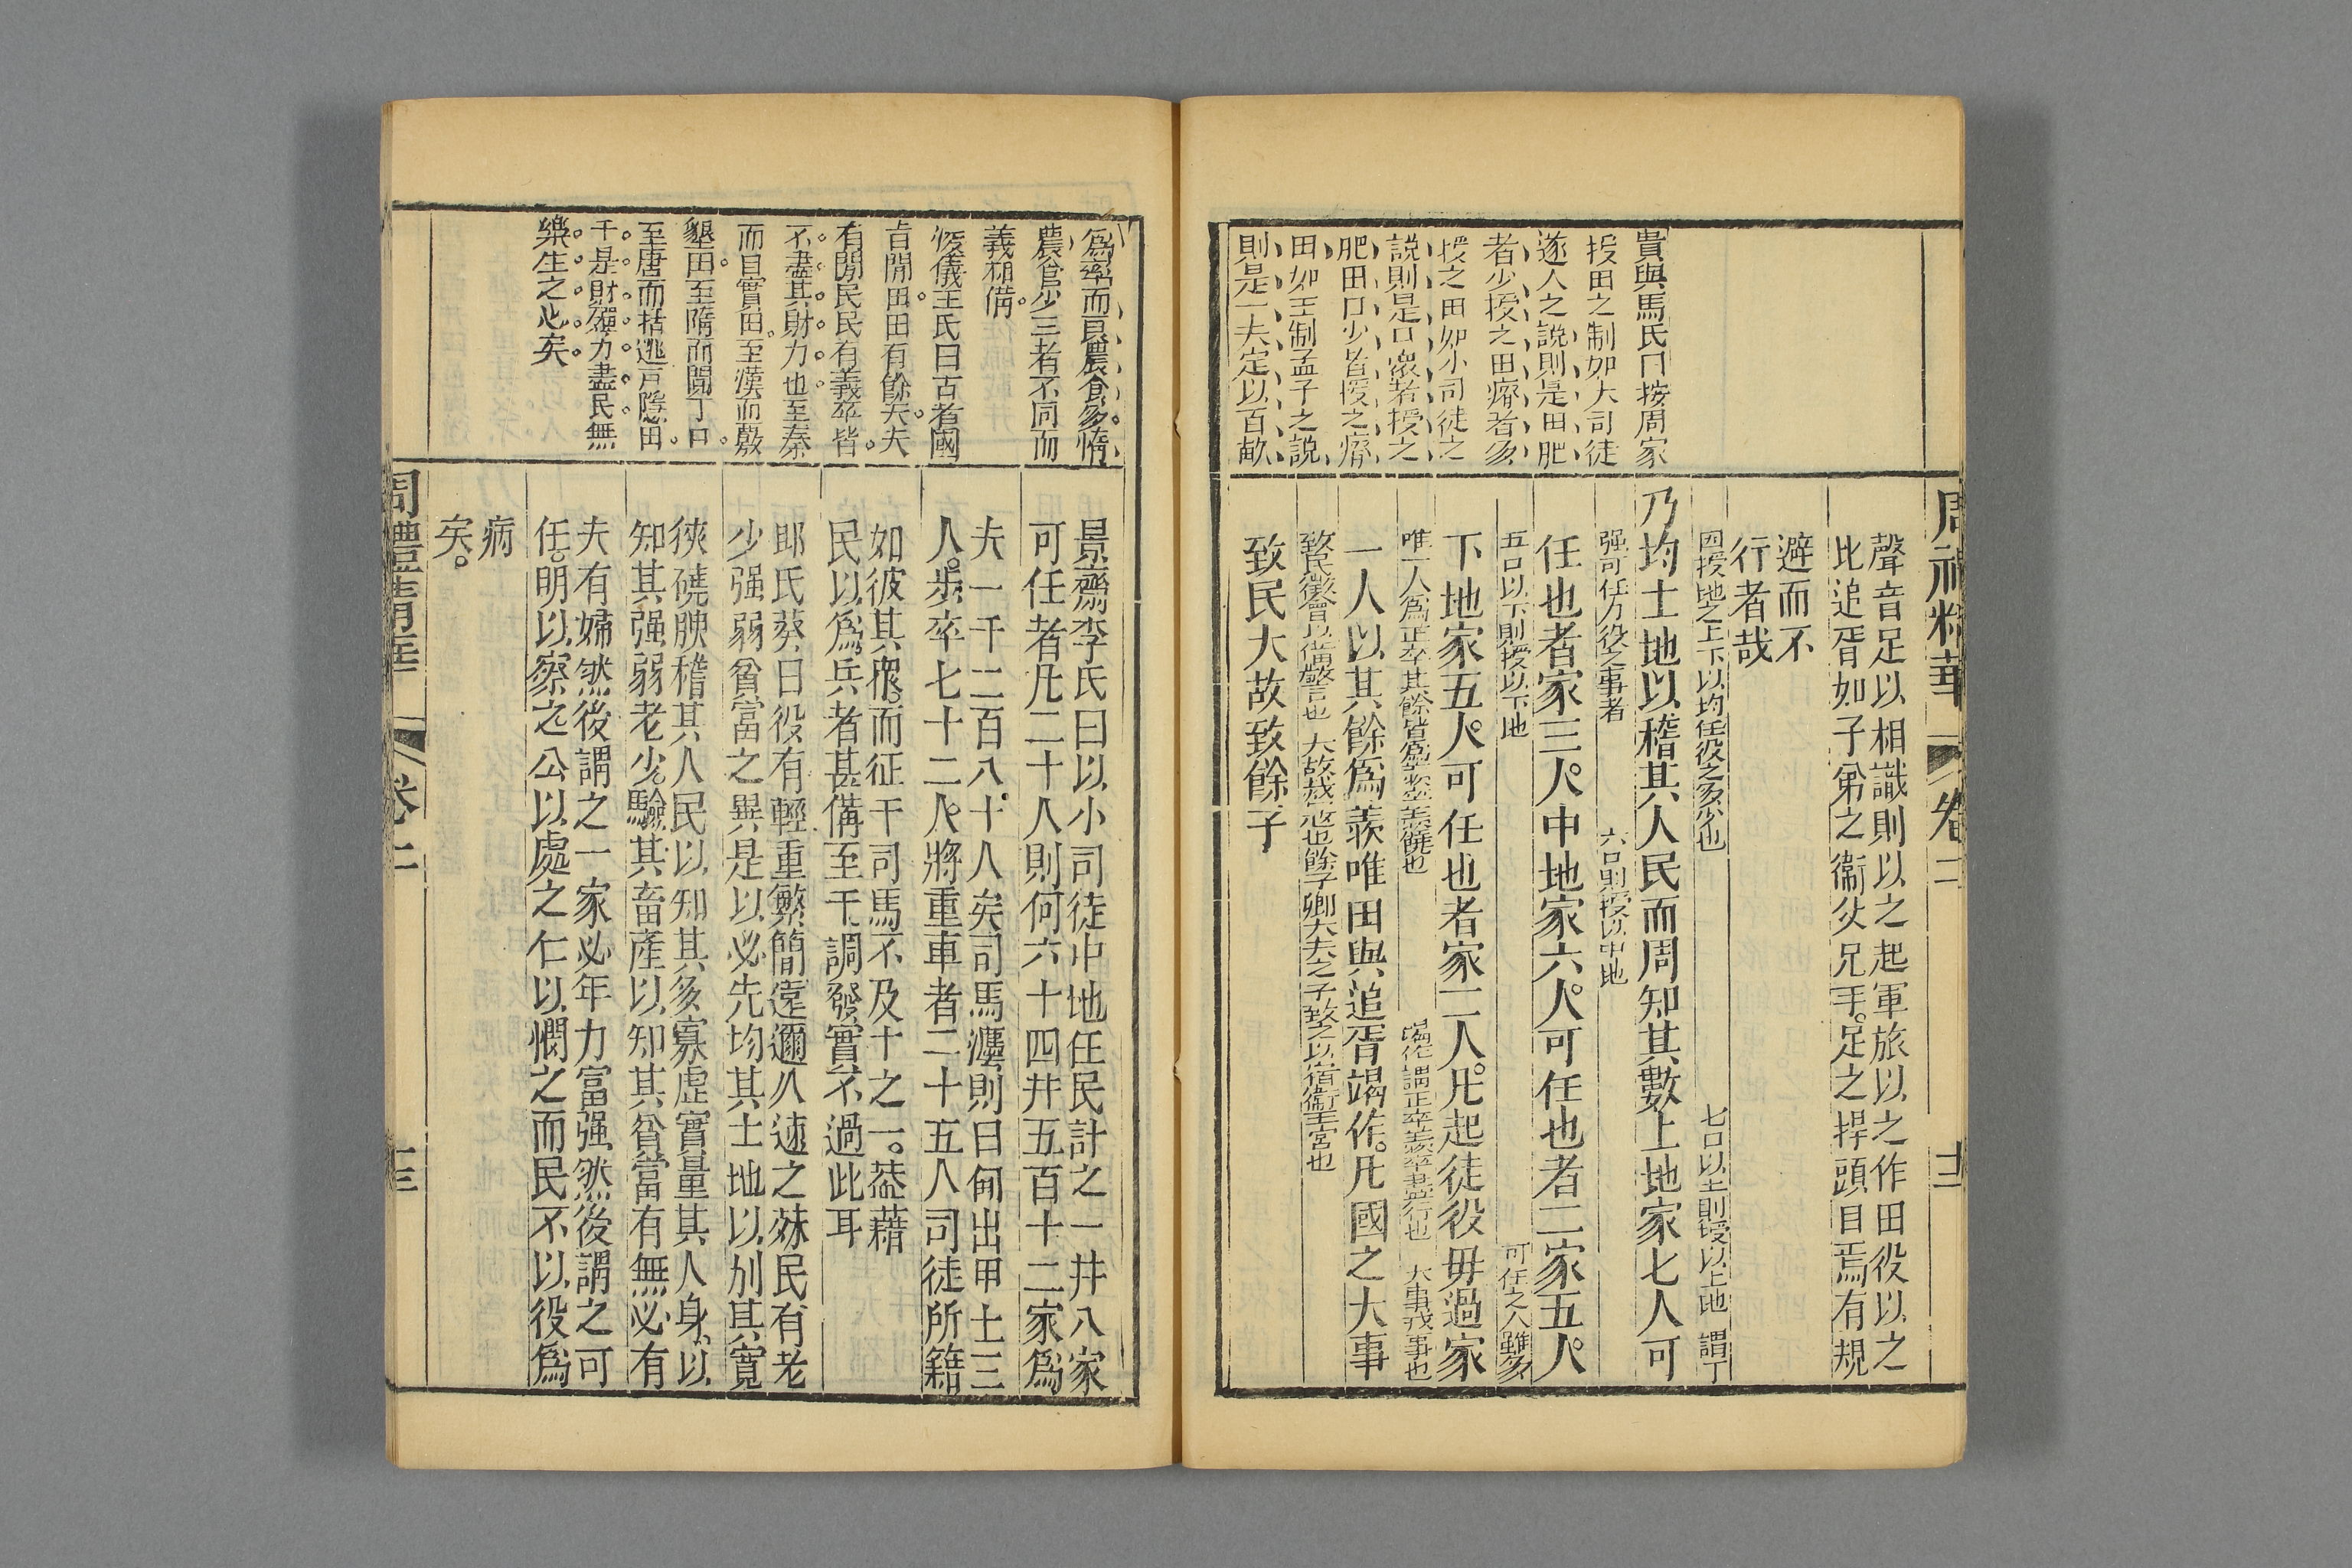 周禮精華
卷二
十二
貴與馬氏曰按周家
授田之制如大司徒
遂人之說則是田肥
者少授之田瘠者多
授之田如小司徒之
說則是口衆者授之
肥田口少者授之瘠
田如王制孟子之說
則是一夫定以百畝
聲音足以相識則以之起軍旅以之作田役以之
比追胥如子弟之衞父兄手足之捍頭目焉有規
避而不
行者哉
因授地之上下以均任役之多少也 七口以上則授以上地 謂丁
乃均土地以稽其人民而周知其數上地家七人可
强可任力役之事者 六口則授以中地
任也者家三人中地家六人可任也者二家五人
五口以下則授以下地 可任之人雖多
下地家五人可任也者家二人凡起徒役毋過家
唯一人爲正卒其餘皆爲羨卒羨饒也 竭作謂正卒羨卒盡行也 大事戎事也
一人以其餘爲羨唯田與追胥竭作凡國之大事
致民徵會以備警言也 大故烖寇也餘子卿大夫之子致之以宿衞王宮也
致民大故致餘子
爲率而良農食多惰
農食少三者不同而
義相備
浚儀王氏曰古者國
有閒田田有餘夫夫
有閒民民有羨卒皆
不盡其財力也至秦
而自實田至漢而覈
墾田至隋而閱丁口
至唐而括逃戶隱田
于是財殫力盡民無
樂生之心矣
景齋李氏曰以小司徒中地任民計之一井八家
可任者凡二十人則何六十四井五百十二家爲
夫一千二百八十人矣司馬灋則曰甸出甲士三
人步卒七十二人將重車者二十五人司徒所籍
如彼其衆而征于司馬不及十之一葢藉
民以爲兵者甚備至于調發實不過此耳
郎氏葵曰役有輕重繁簡遠邇久速之殊民有老
少强弱貧富之異是以必先均其土地以別其寬
狹磽腴稽其人民以知其多寡虛實量其人身以
知其强弱老少驗其畜產以知其貧富有無必有
夫有婦然後謂之一家必年力富强然後謂之可
任明以察之公以處之仁以憫之而民不以役爲
病
矣
周禮精華
卷二
十三